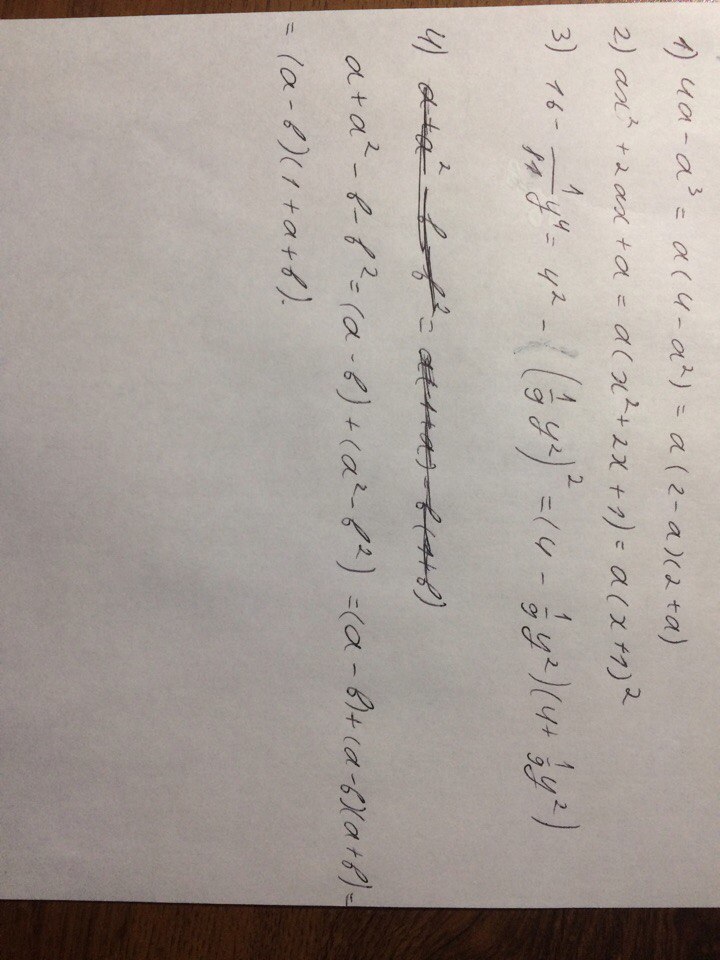 1) 4a - a³ = a(4 - a²) = a(2 - a)(2 + a)
2) ax² + 2ax + a = a(x² + 2x + 1) = a(x + 1)²
3) 16 - 1/81 y⁴ = 4² - (1/9 y²)² = (4 - 1/9 y²)(4 + 1/9 y²)
4) a + a² - b - b² = a(1 + a) - b(1 + b)
a + a² - b - b² = (a - b) + (a² - b²) = (a - b) + (a - b)(a + b) =
= (a - b)(1 + a + b).